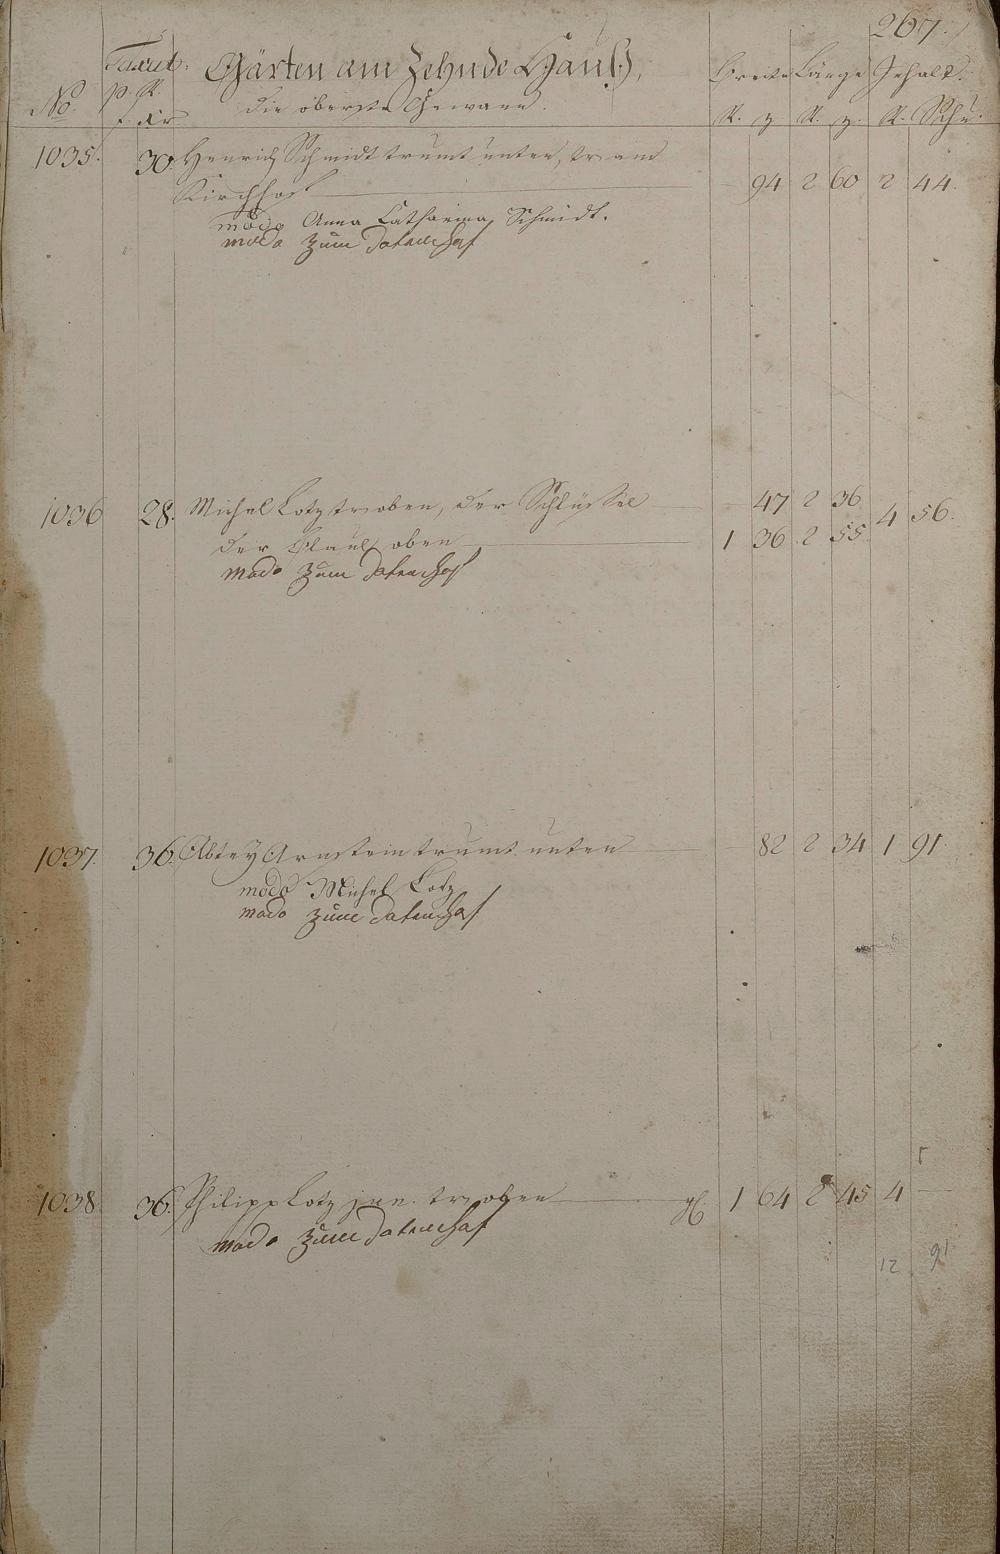 267.
Taxat. Gärten am Zehnde Hauß, Breite Länge Gehalt.
No. p. R. die oberste Gewann.
f. xr R. z R. z. R. Schu.
1035. 30. Henrich Schmidt trumt unten, tr. am
Kirchhof 94 2 60 2 44.
modo Anna Catharina Schmidt.
modo zum
1036 28. Michel Lotz tr. oben, der Schlüssel 47 2 36
der oben 1 36 2 55 4 56.
modo zum
1037 36. Abtey Arnstein trumt unten 82 2 34 1 91.
modo Michel Lotz
modo zum
1038 36. Philipp Lotz jun. tr. oben 1 64 2 45 4 —
modo zum
12 91